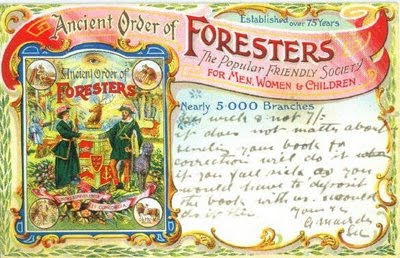 Ancient Order of
FORESTERS
Established over 75 Years
The Popular FRIENDLY SOCIETY
FOR MEN, WOMEN & CHILDREN
Nearly 5·000 Branches
Ancient Order of
FORESTERS
week & not 7/-
it does not matter about
sending your book for
correction will do it when
if you fall sick as you
would have to deposit
the book with us. would
do it then
Yours &c